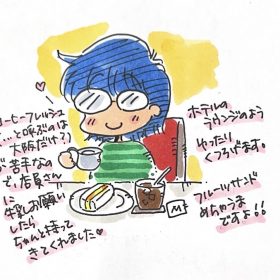 ーヒーフレッシュ
…と呼ぶのは
大阪だけ?)
が苦手なの
で、店員さん
に
牛乳お願い
したら
ちゃんと持って
きてくれました
ホテルの
ラウンジのよう
ゆったり
くつろげます。
フルーツサンド
めちゃうま
ですよ!!
M